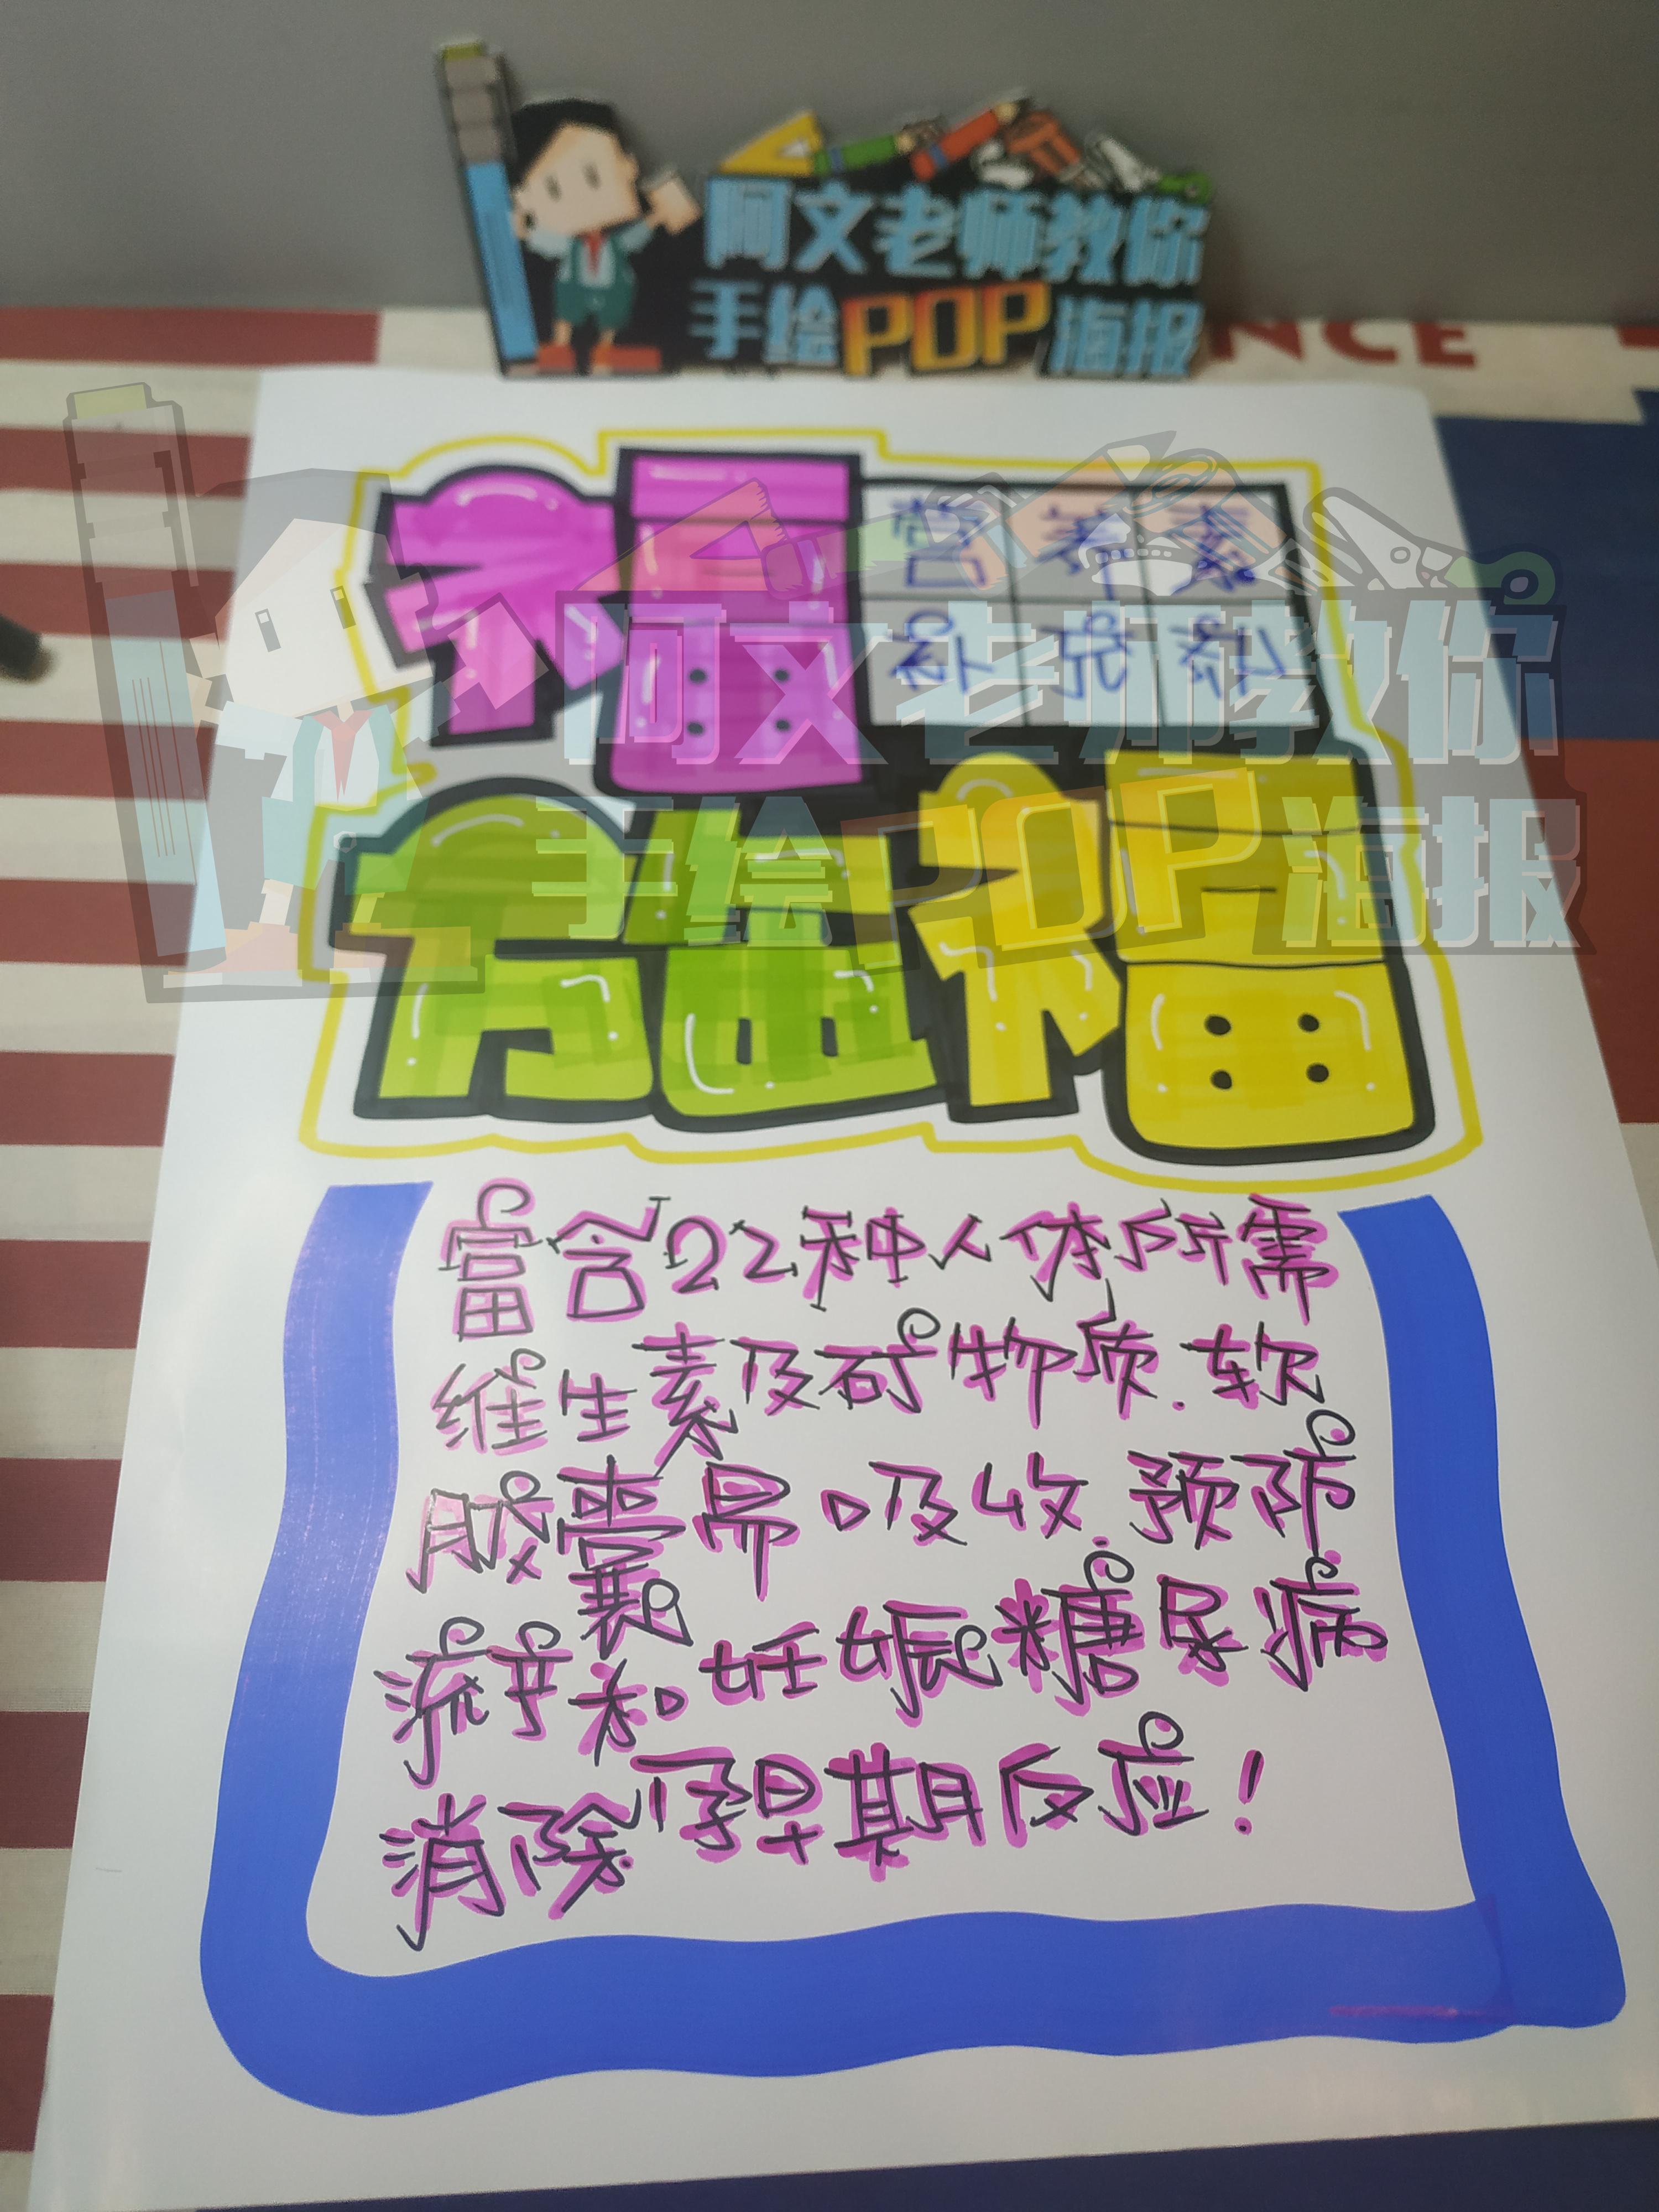 阿文老师教你
手绘POP海报
NCE
福
营养素
补充剂
施福
阿文老师教你
手绘POP海报
富含22种人体所需
维生素及矿物质.软
胶囊易吸收.预防
流产和妊娠糖尿病
消除孕早期反应!